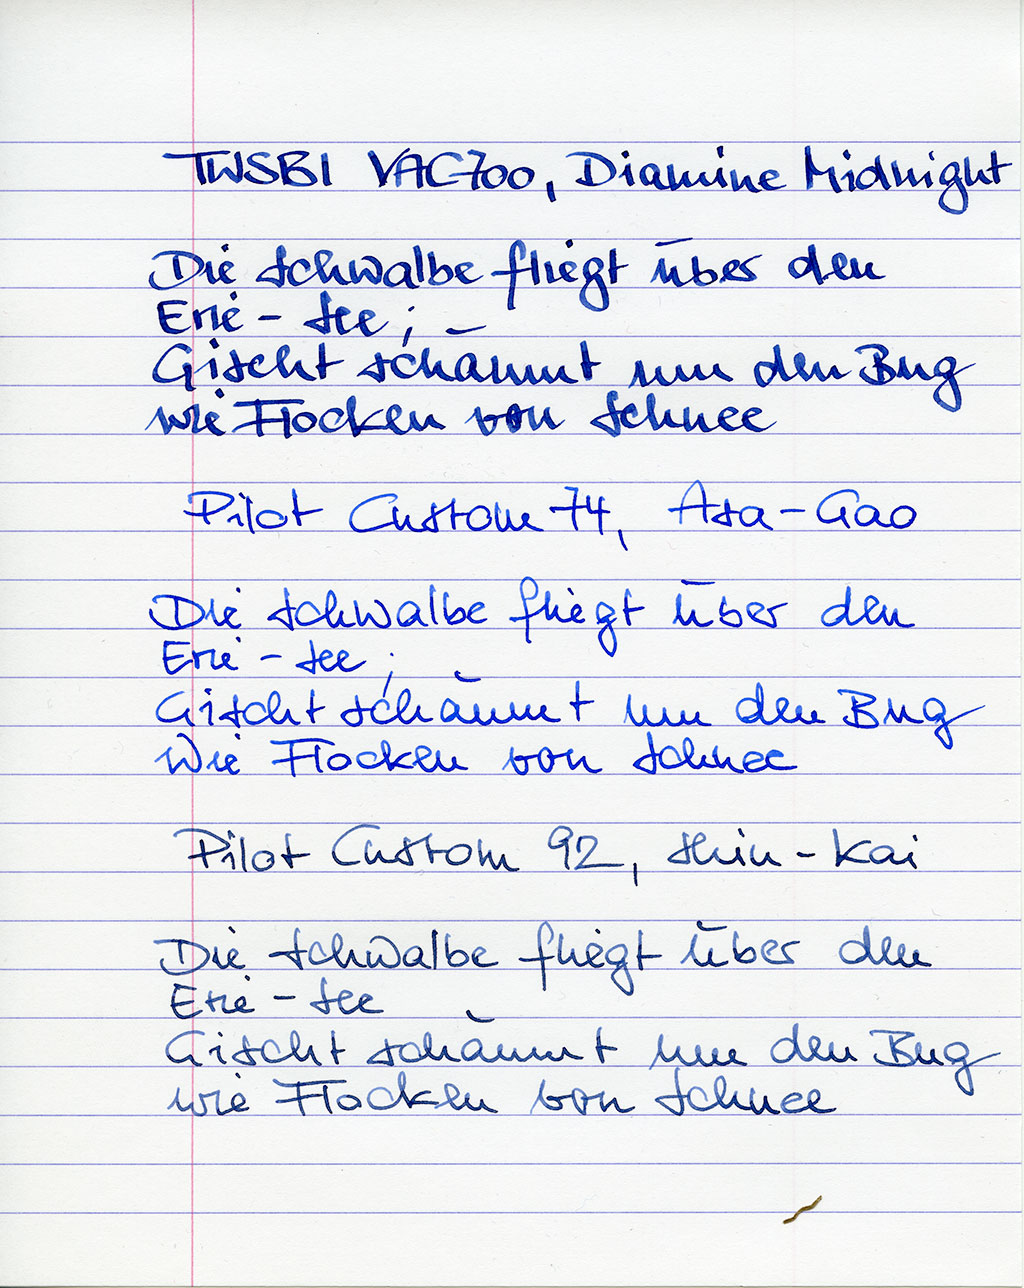 TWSBI VAC700, Diamine Midnight
Die Schwalbe fliegt über den
Erie-See;
Gischt schäumt um den Bug
wie Flocken von Schnee
Pilot Custom 74, Asa-Gao
Die Schwalbe fliegt über den
Erie-See;
Gischt schäumt um den Bug
Wie Flocken von Schnee
Pilot Custom 92, Shin-Kai
Die Schwalbe fliegt über den
Erie-See
Gischt schäumt um den Bug
wie Flocken von Schnee